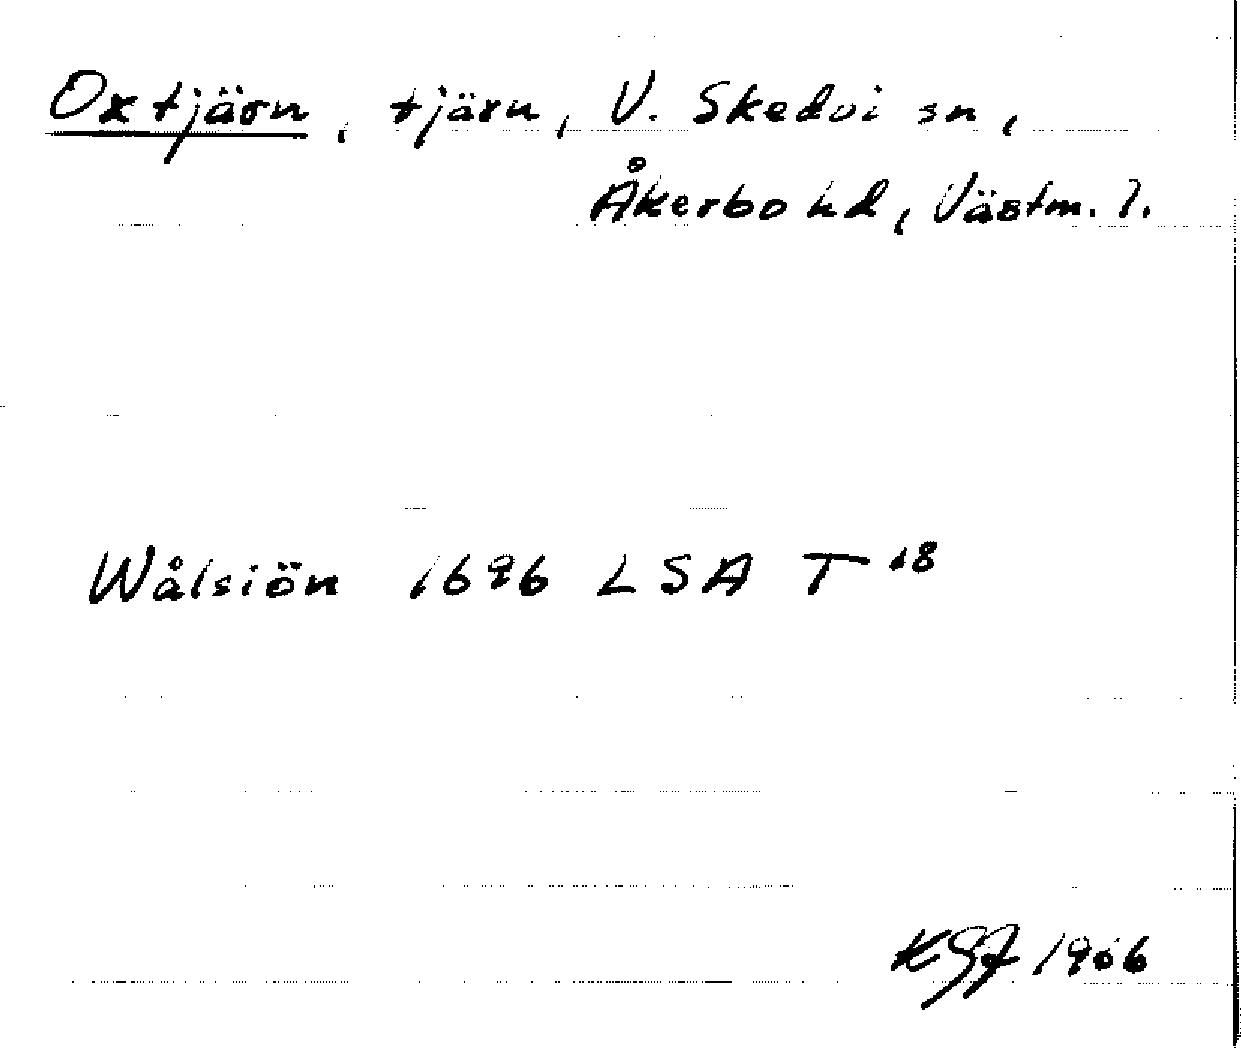 Oxtjärn, tjärn, V. Skedvi sn,
Åkerbo hd, Västm. l.
Wålsiön 1696 LSA T 18
KGJ 1966